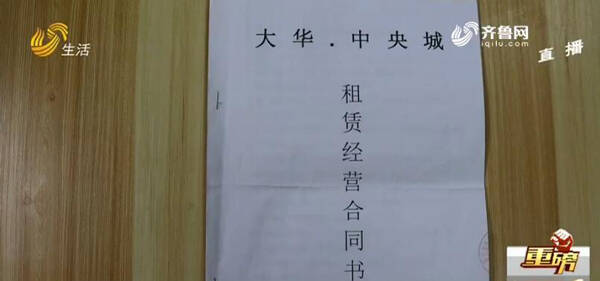 生活
大华.中央城
齐鲁网
iqilu.com
直播
租赁经营合同书
重磅